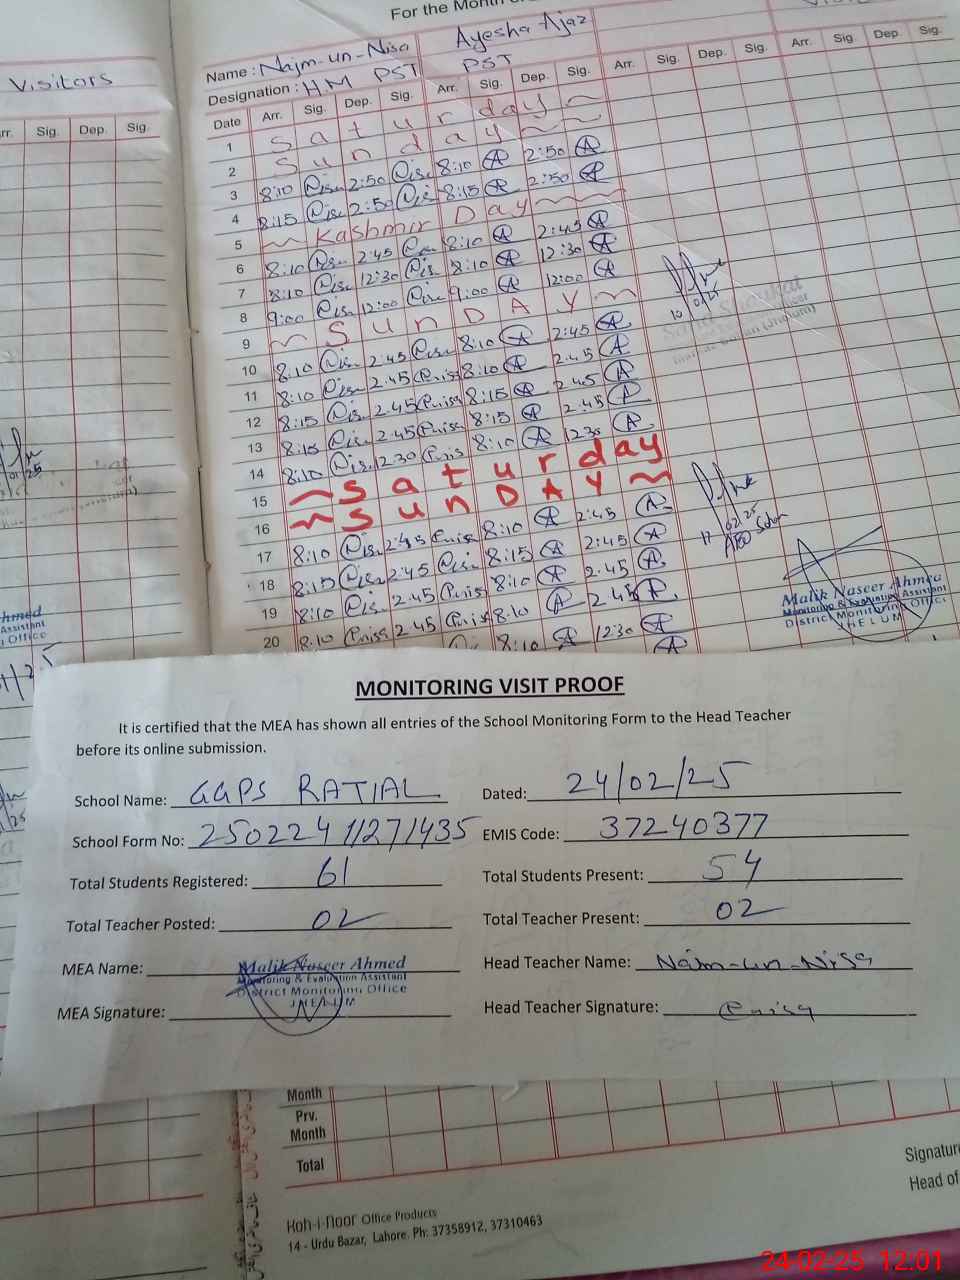 For the Month
Visitors
Name : Najm-un-Nisa Ayesha Ajaz
Designation : HM PST PST
Arr. Sig. Dep. Sig.
Date Arr. Sig. Dep. Sig. Arr. Sig. Dep. Sig. Arr. Sig. Dep. Sig. Arr. Sig. Dep. Sig.
1 Saturday
2 Sunday
3 8:10 2:50 8:10 2:50
4 8:15 2:50 8:15 2:50
5 Kashmir Day
6 8:10 2:45 8:10 2:45
7 8:10 12:30 8:10 12:30
8 9:00 12:00 9:00 12:00
9 SunDAY
10 8:10 2:45 8:10 2:45
11 8:10 2:45 8:10 2:45
12 8:15 2:45 8:15 2:45
13 8:15 2:45 8:15 2:45
14 8:10 12 30 8:10 12 30
15 Saturday
16 SunDAY
17 8:10 2:45 8:10 2:45
18 8:15 2:45 8:15 2:45
19 8:10 2.45 8:10 2.45
20 8:10 2.45 8:10 2.45
8:10 12:30
Malik Naseer Ahmed
Monitoring & Evaluation Assistant
District Monitoring Office
JHELUM
MONITORING VISIT PROOF
It is certified that the MEA has shown all entries of the School Monitoring Form to the Head Teacher
before its online submission.
School Name: GGPS RATIAL Dated: 24/02/25
School Form No: 2502241/271435 EMIS Code: 37240377
Total Students Registered: 61 Total Students Present: 54
Total Teacher Posted: 02 Total Teacher Present: 02
MEA Name: Malik Naseer Ahmed Head Teacher Name: Najm-un-Nisa
Monitoring & Evaluation Assistant
District Monitoring Office
JHELUM
MEA Signature: Head Teacher Signature:
Month
Prv.
Month
Total
Signature
Head of
Koh-i-noor Office Products
14 - Urdu Bazar, Lahore. Ph: 37358912, 37310463
24-02-25 12:01